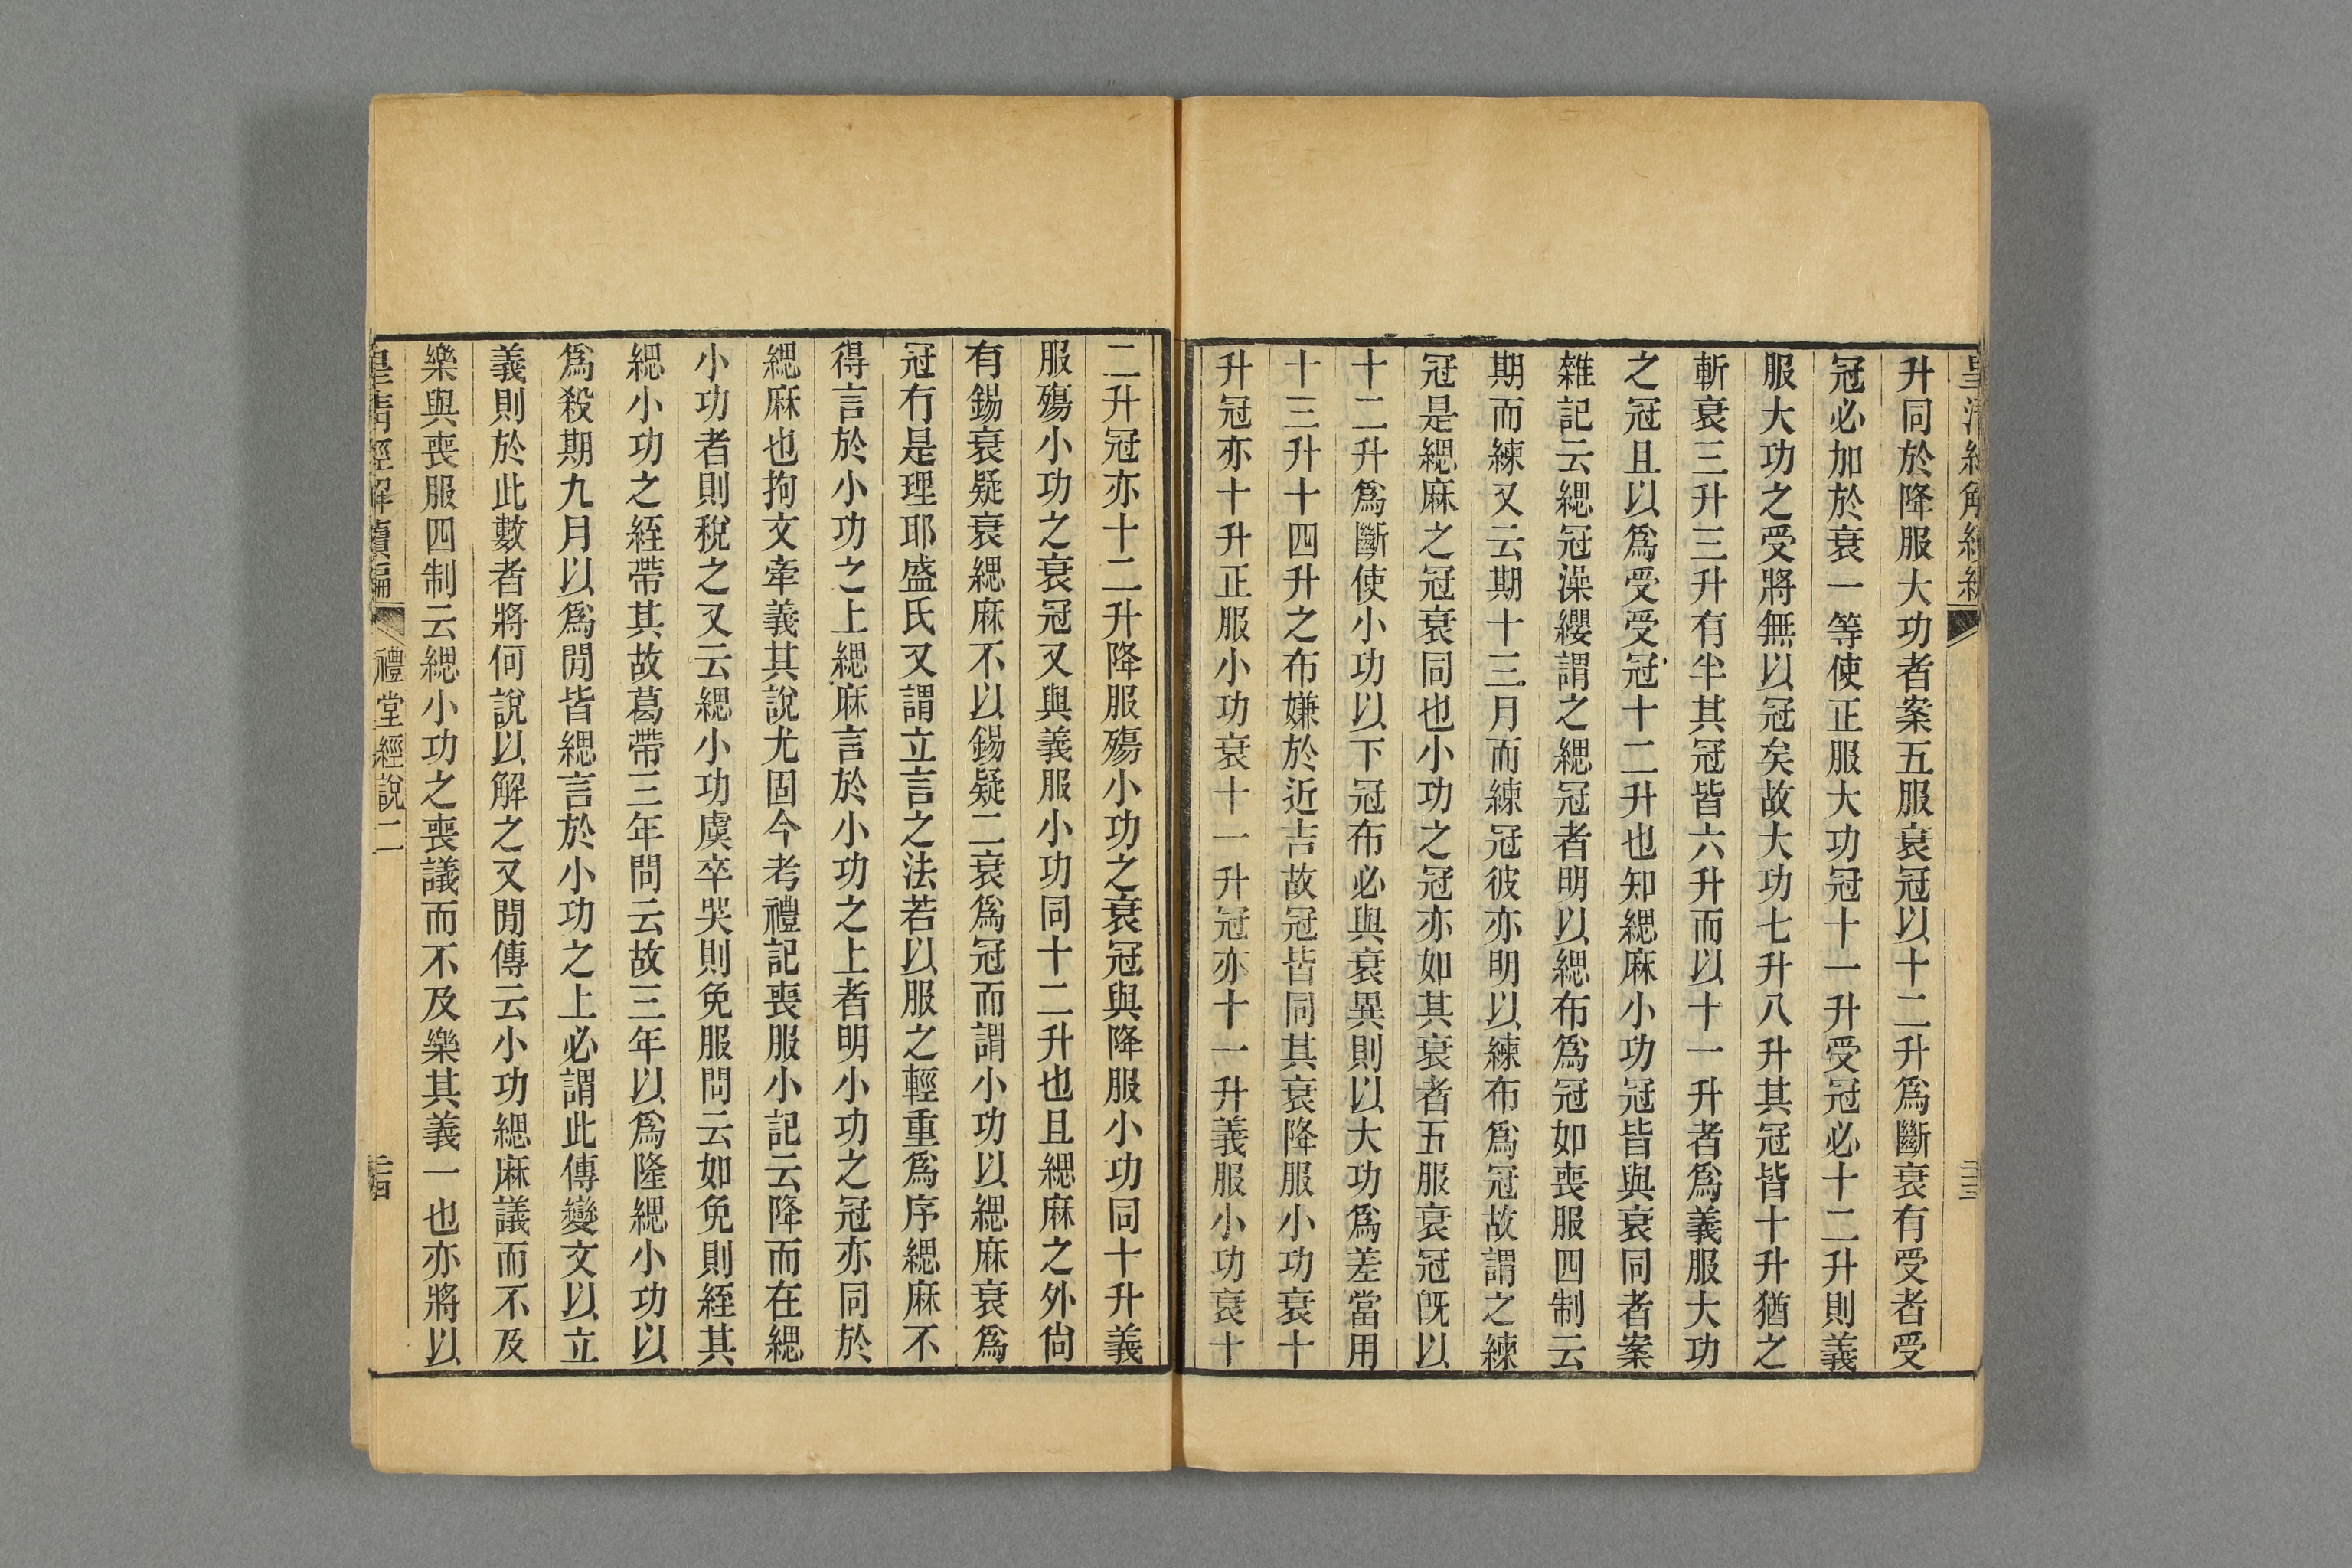 皇清經解續編
三三
升同於降服大功者案五服衰冠以十二升爲斷衰有受者受
冠必加於衰一等使正服大功冠十一升受冠必十二升則義
服大功之受將無以冠矣故大功七升八升其冠皆十升猶之
斬衰三升三升有半其冠皆六升而以十一升者爲義服大功
之冠且以爲受受冠十二升也知緦麻小功冠皆與衰同者案
雜記云緦冠澡纓謂之緦冠者明以緦布爲冠如喪服四制云
期而練又云期十三月而練冠彼亦明以練布爲冠故謂之練
冠是緦麻之冠衰同也小功之冠亦如其衰者五服衰冠旣以
十二升爲斷使小功以下冠布必與衰異則以大功爲差當用
十三升十四升之布嫌於近吉故冠皆同其衰降服小功衰十
升冠亦十升正服小功衰十一升冠亦十一升義服小功衰十
二升冠亦十二升降服殤小功之衰冠與降服小功同十升義
服殤小功之衰冠又與義服小功同十二升也且緦麻之外尙
有錫衰疑衰緦麻不以錫疑二衰爲冠而謂小功以緦麻衰爲
冠冇是理耶盛氏又謂立言之法若以服之輕重爲序緦麻不
得言於小功之上緦麻言於小功之上者明小功之冠亦同於
緦麻也拘文牽義其說尤固今考禮記喪服小記云降而在緦
小功者則稅之又云緦小功虞卒哭則免服問云如免則絰其
緦小功之絰帶其故葛帶三年問云故三年以爲隆緦小功以
爲殺期九月以爲閒皆緦言於小功之上必謂此傳變文以立
義則於此數者將何說以解之又閒傳云小功緦麻議而不及
樂與喪服四制云緦小功之喪議而不及樂其義一也亦將以
皇清經解續編
禮堂經說二
二四